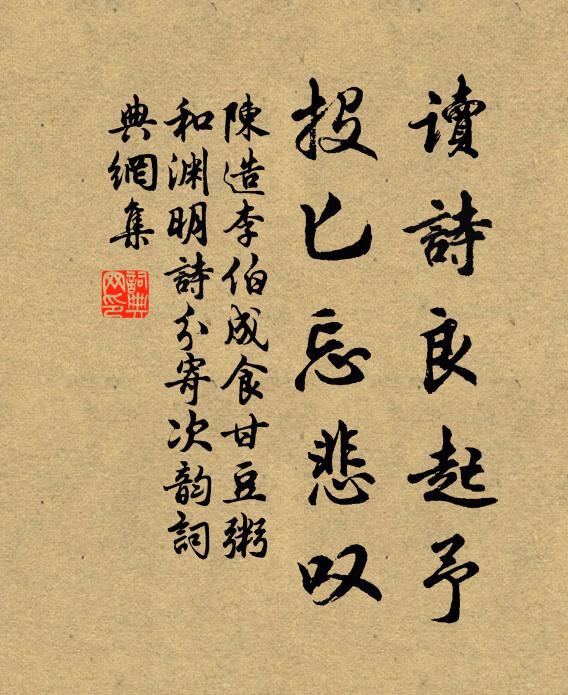 讀詩良起予
投匕忘悲叹
陳造李伯成食甘豆粥
和渊明詩分寄次韵詞
典網集
詞典网印